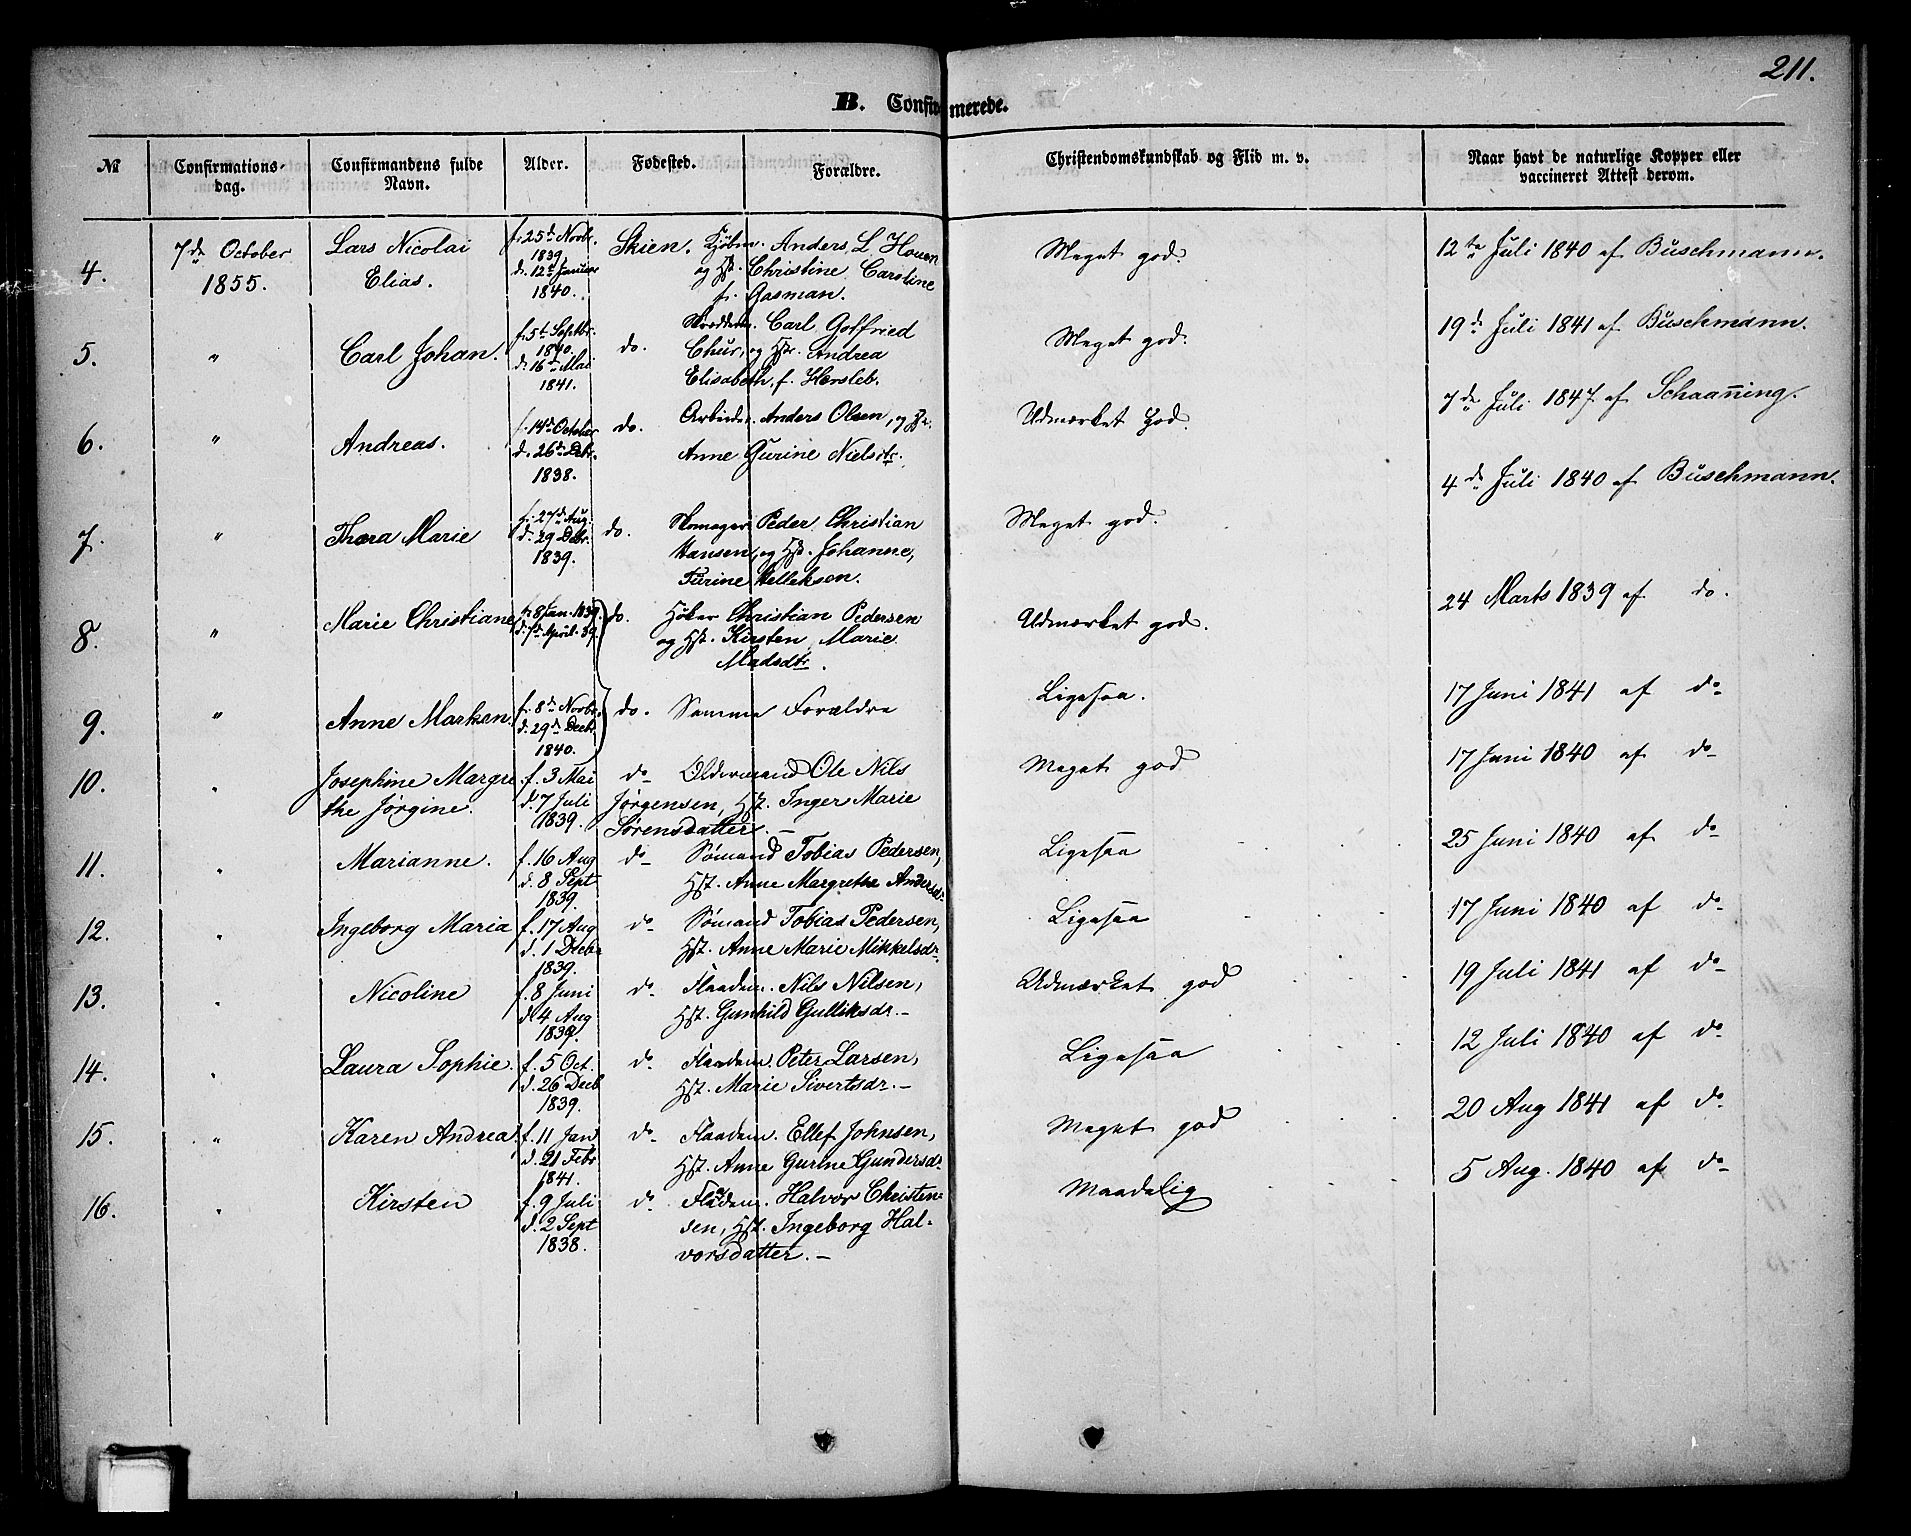 211.
B. Confirmerede.
№
Confirmations-
dag.
Confirmandens fulde
Navn.
Alder.
Fødested.
Forældre.
Christendomskundskab og Flid m. v.
Naar havt de naturlige Kopper eller
vaccineret Attest derom.
4.
7de October
1855.
Lars Nicolai
Elias.
f. 25de Novbr.
1839
d. 12te Januar
1840.
Skien.
Kjøbm. Anders L. Houen
og Hst. Christine Carstine
f. Gasman.
Meget god.
12te Juli 1840 af Buschmann.
5.
"
Carl Johan.
f. 5te Septbr.
1840.
d. 16de Mai
1841.
do.
Carl Gotfried
Chur, og Hst. Andrea
Elisabeth, f. Hersleb.
Meget god.
19de Juli 1841 af Buschmann.
6.
"
Andreas.
f. 14de October
d. 26de Debr.
1838.
do.
Arbeider. Anders Olsen, og Hst.
Anne Gurine Nielsdtr.
Udmærket God.
7de Juli 1847 af Schaanning.
7.
"
Thora Marie
f. 27de Aug.
d. 29 Debr.
1839.
do.
Skomager Peder Christian
Hansen, og Hst. Johanne,
Turine Helleksen.
Meget god.
4de Juli 1840 af Buschmann.
8.
"
Marie Christiane
f. 8 Jan. 1839.
d. 7de April. 39.
do.
Høker Christian Pedersen
og Hst. Kirsten Marie
Madsdtr.
Udmærket god.
24 Marts 1839 af do.
9.
"
Anne Marken.
f. 8de Novbr.
d. 29de Decbr.
1840.
do.
Samme Forældre
Ligesaa.
17 Juni 1841 af do
10.
"
Josephine Margre-
the Jørgine.
f. 3 Mai
d. 7 Juli
1839.
do
Oldermand Ole Nils
Jørgensen, Hst. Inger Marie
Sørensdatter. -
Meget god
17 Juni 1840 af do
11.
"
Marianne.
f. 16 Aug
d. 8 Sept
1839.
do
Sømand Tobias Pedersen,
Hst. Anne Margrethe Andersdr.
Ligesaa
25 Juni 1840 af do
12.
"
Ingeborg Maria
f. 17 Aug
d. 1 Decbr
1839.
do
Sømand Tobias Pedersen,
Hst. Anne Marie Mikkelsdr.
Ligesaa
17 Juni 1840 af do
13.
"
Nicoline
f. 8 Juni
d. 4 Aug
1839.
do
Flaadem. Nils Nilsen,
Hst. Gunhild Gulliksdr. -
Udmærket god
19 Juli 1841 af do
14.
"
Laura Sophie.
f. 5 Oct.
d. 26 Decb
1839.
do
Flaadem. Peter Larsen,
Hst. Marie Sivertsdr. -
Ligesaa
12 Juli 1840 af do
15.
"
Karen Andrea.
f. 11 Jan
d. 21 Febr
1841.
do
Flaadem. Ellef Johnsen,
Hst. Anne Gurine Gundersdr
Meget god
20 Aug 1841 af do
16.
"
Kirsten
f. 9 Juli
d. 2 Sept
1838.
do
Flaadem. Halvor Christen-
sen, Hst. Ingeborg Hal-
vorsdatter. -
Maadelig
5 Aug. 1840 af do